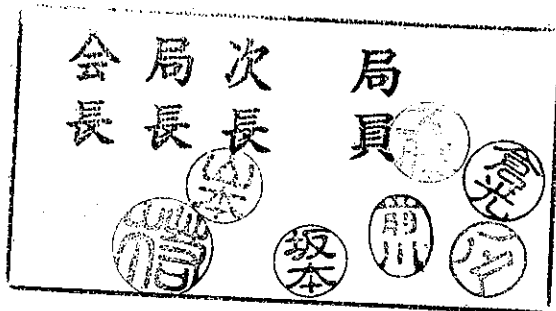 会長
局長
次長
局員
山本
坂本
前川
倉光